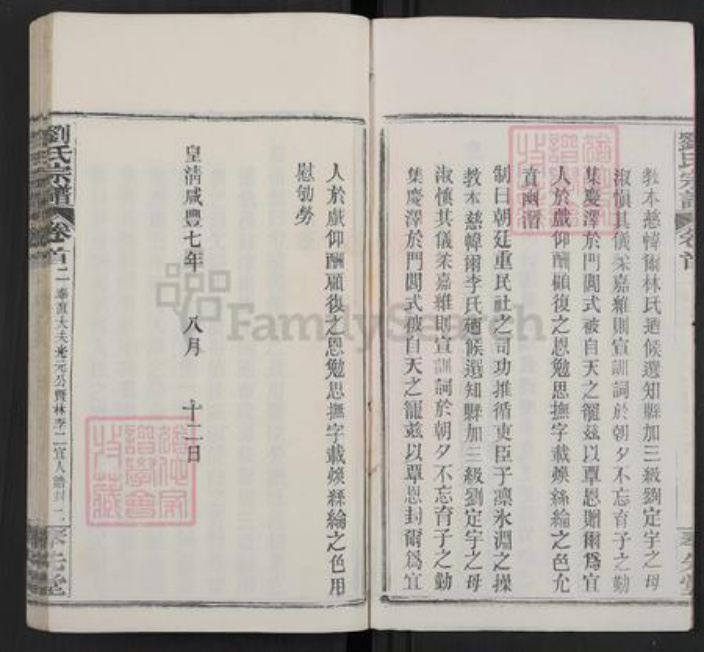 教本慈幃爾林氏迺候選知縣加三級劉定宇之母
淑慎其儀柔嘉維則宣訓詞於朝夕不忘育子之勤
集慶澤於門閭式被自天之寵茲以覃恩贈爾為宜
人於戲仰酬顧復之恩勉思撫字載煥絲綸之色允
賁幽潛
制曰朝廷重民社之司功推循吏臣子凜氷淵之操
教本慈幃爾李氏迺候選知縣加三級劉定宇之母
淑慎其儀柔嘉維則宣訓詞於朝夕不忘育子之勤
集慶澤於門閭式被自天之寵茲以覃恩封爾為宜
人於戲仰酬顧復之恩勉思撫字載煥絲綸之色用
慰劬勞
皇清咸豐七年 八月 十二日
劉氏宗譜 卷首 二 奉直大夫光元公暨林李二宜人誥封 二
FamilySearch